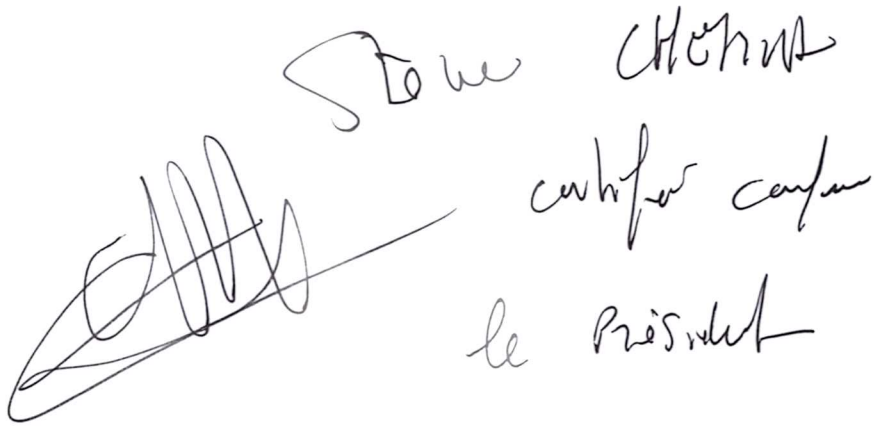 Steve
certifié conforme
le Président